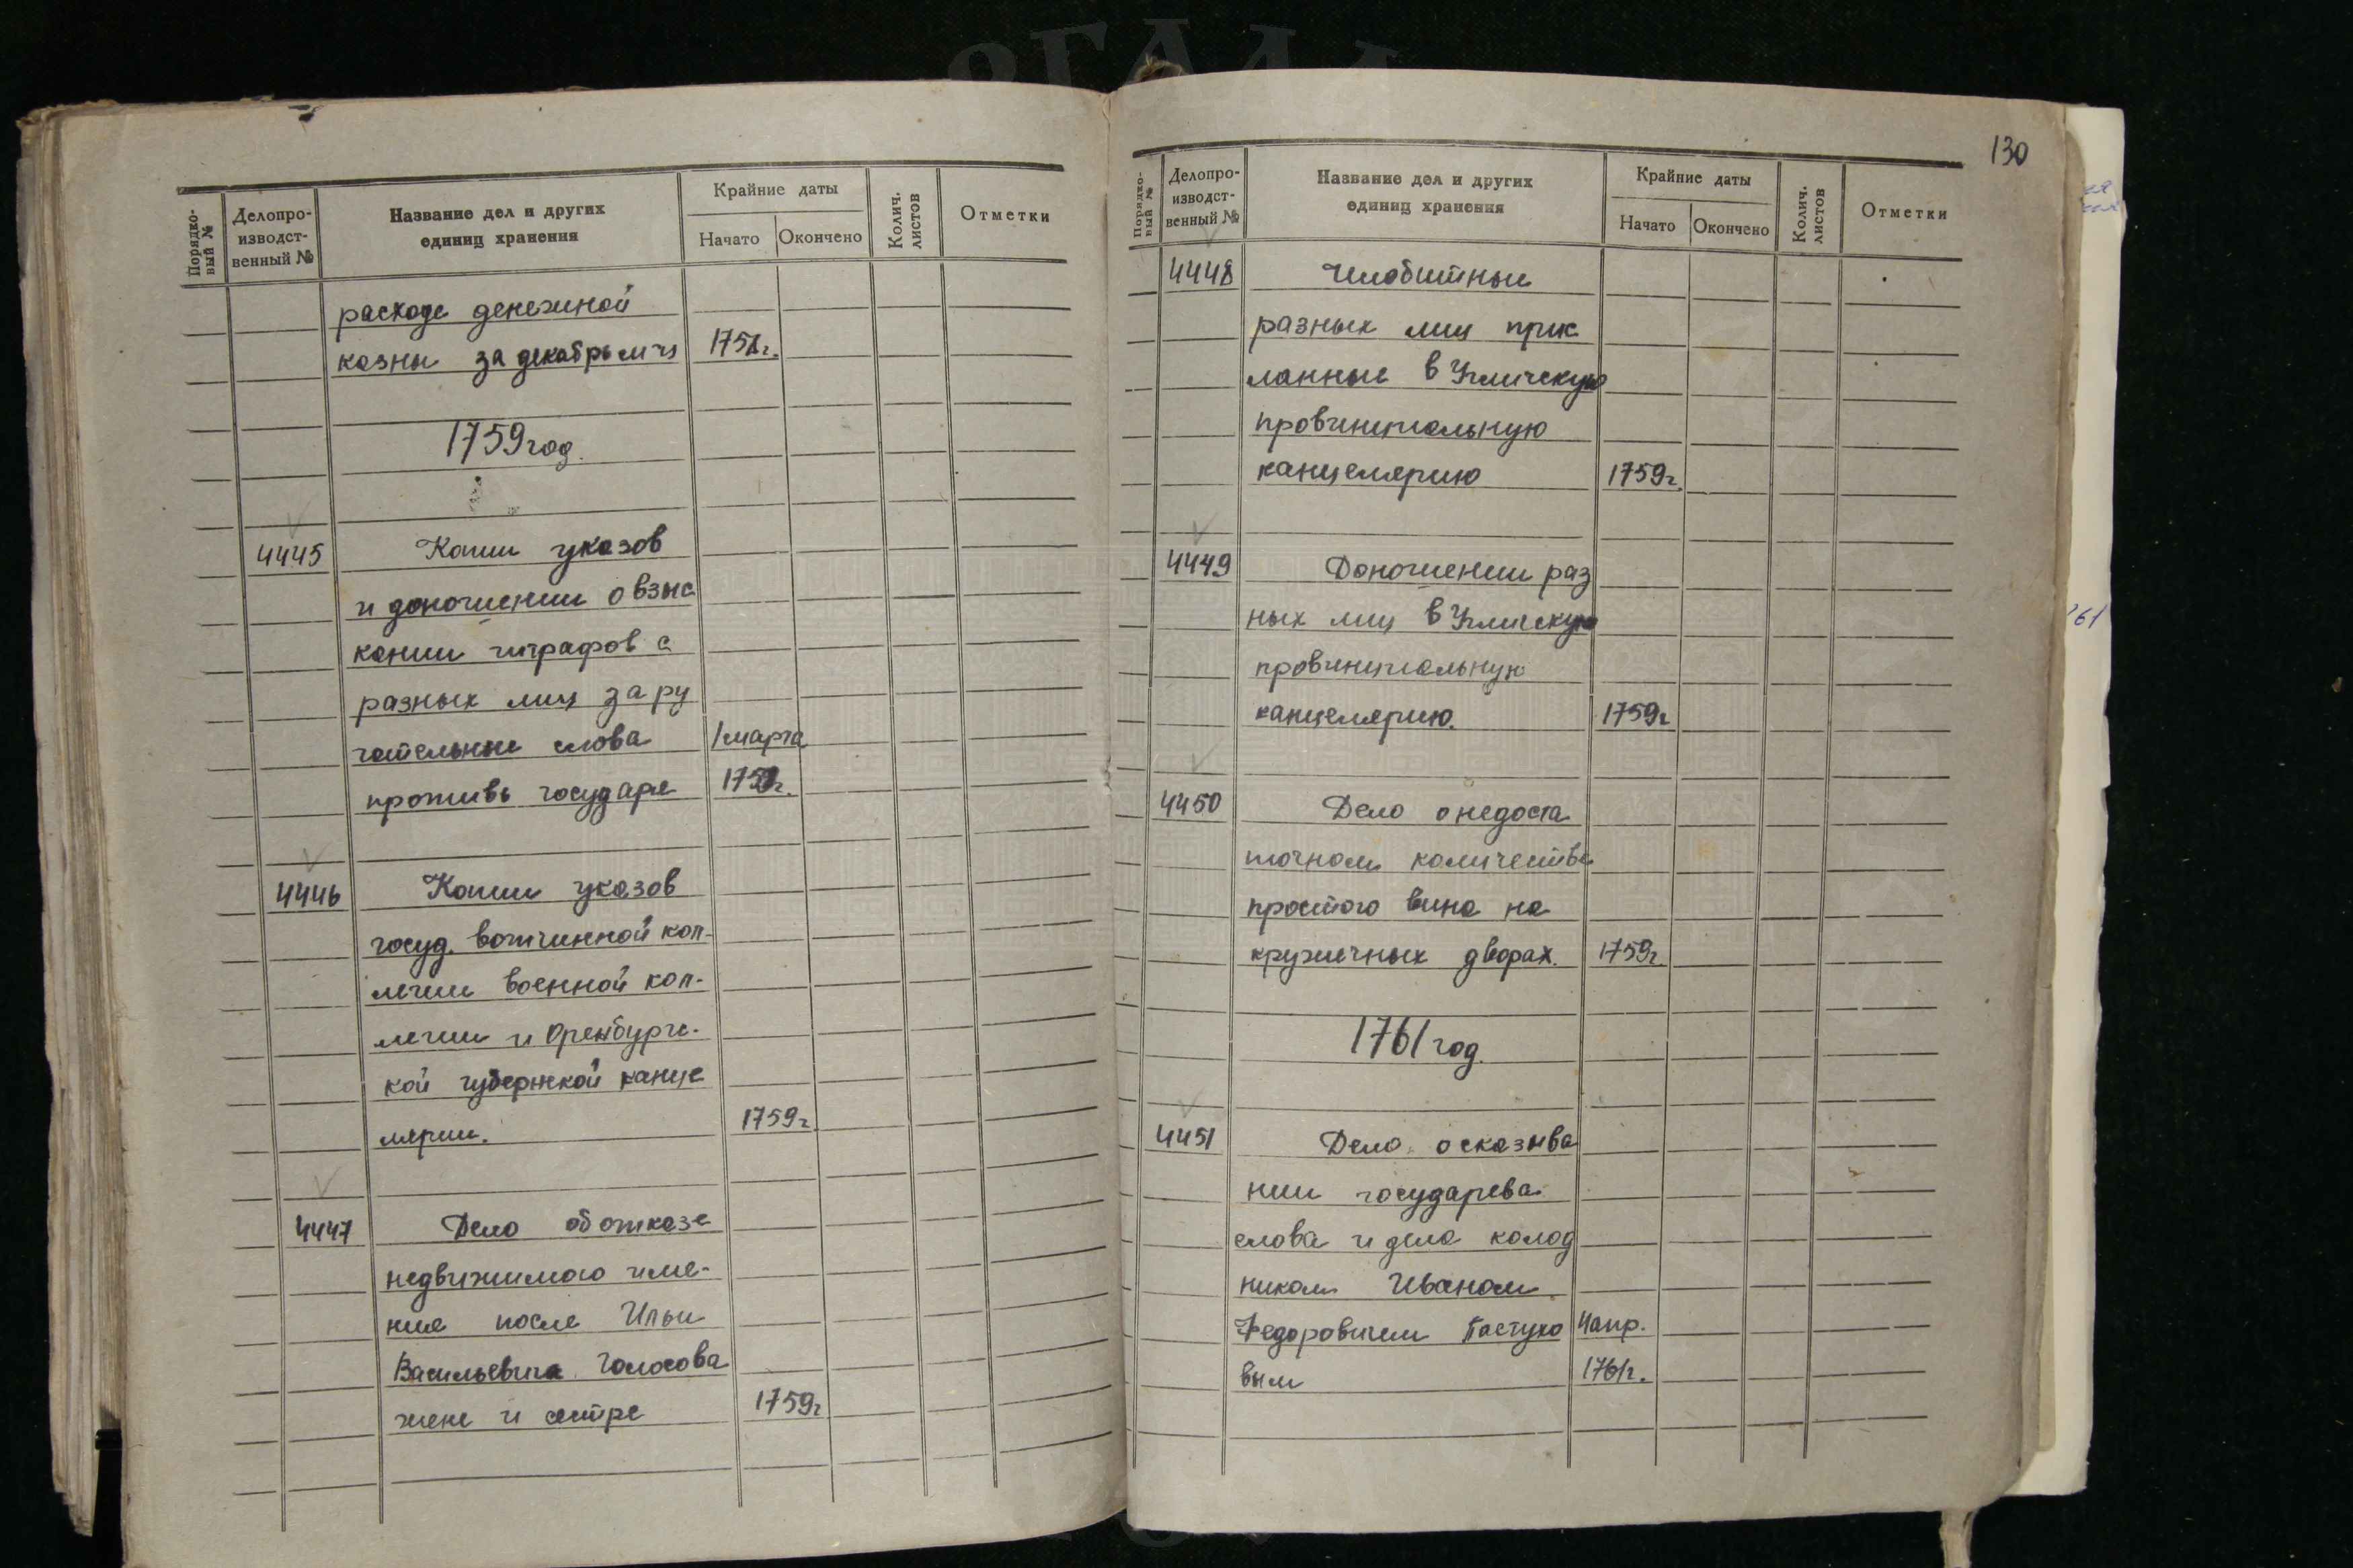 РГАДА
Порядко-
вый №
Делопро-
изводст-
венный №
Название дел и других
единиц хранения
Крайние даты
Начато
Окончено
Колич.
листов
Отметки
расходе денежной
казны за декабрь м-ц 1758г.
1759 год.
4445 Копии указов
и доношении о взыс
кании штрафов с
разных лиц за ру
гательные слова 1 марта
противъ государя 1759г.
4446 Копии указов
госуд. вотчинной кол-
легии военной кол-
легии и Оренбургс-
кой губернской канце
лярии. 1759г
4447 Дело об отказе
недвижимого име-
ния после Ильи
Васильевича Голосова
жене и сестре 1759г
130
Порядко-
вый №
Делопро-
изводст-
венный №
Название дел и других
единиц хранения
Крайние даты
Начато
Окончено
Колич.
листов
Отметки
4448 Челобитные
разных лиц прис
ланные в Угличскую
провинциальную
канцелярию 1759г.
4449 Доношении раз
ных лиц в Угличскую
провинциальную
канцелярию. 1759г
4450 Дело о недоста
точном количестве
простого вина на
кружечных дворах. 1759г.
1761 год.
4451 Дело о сказыва
нии государева
слова и дела колод
ником Иваном
Федоровичем Пастухо 4 апр.
вым 1761г.